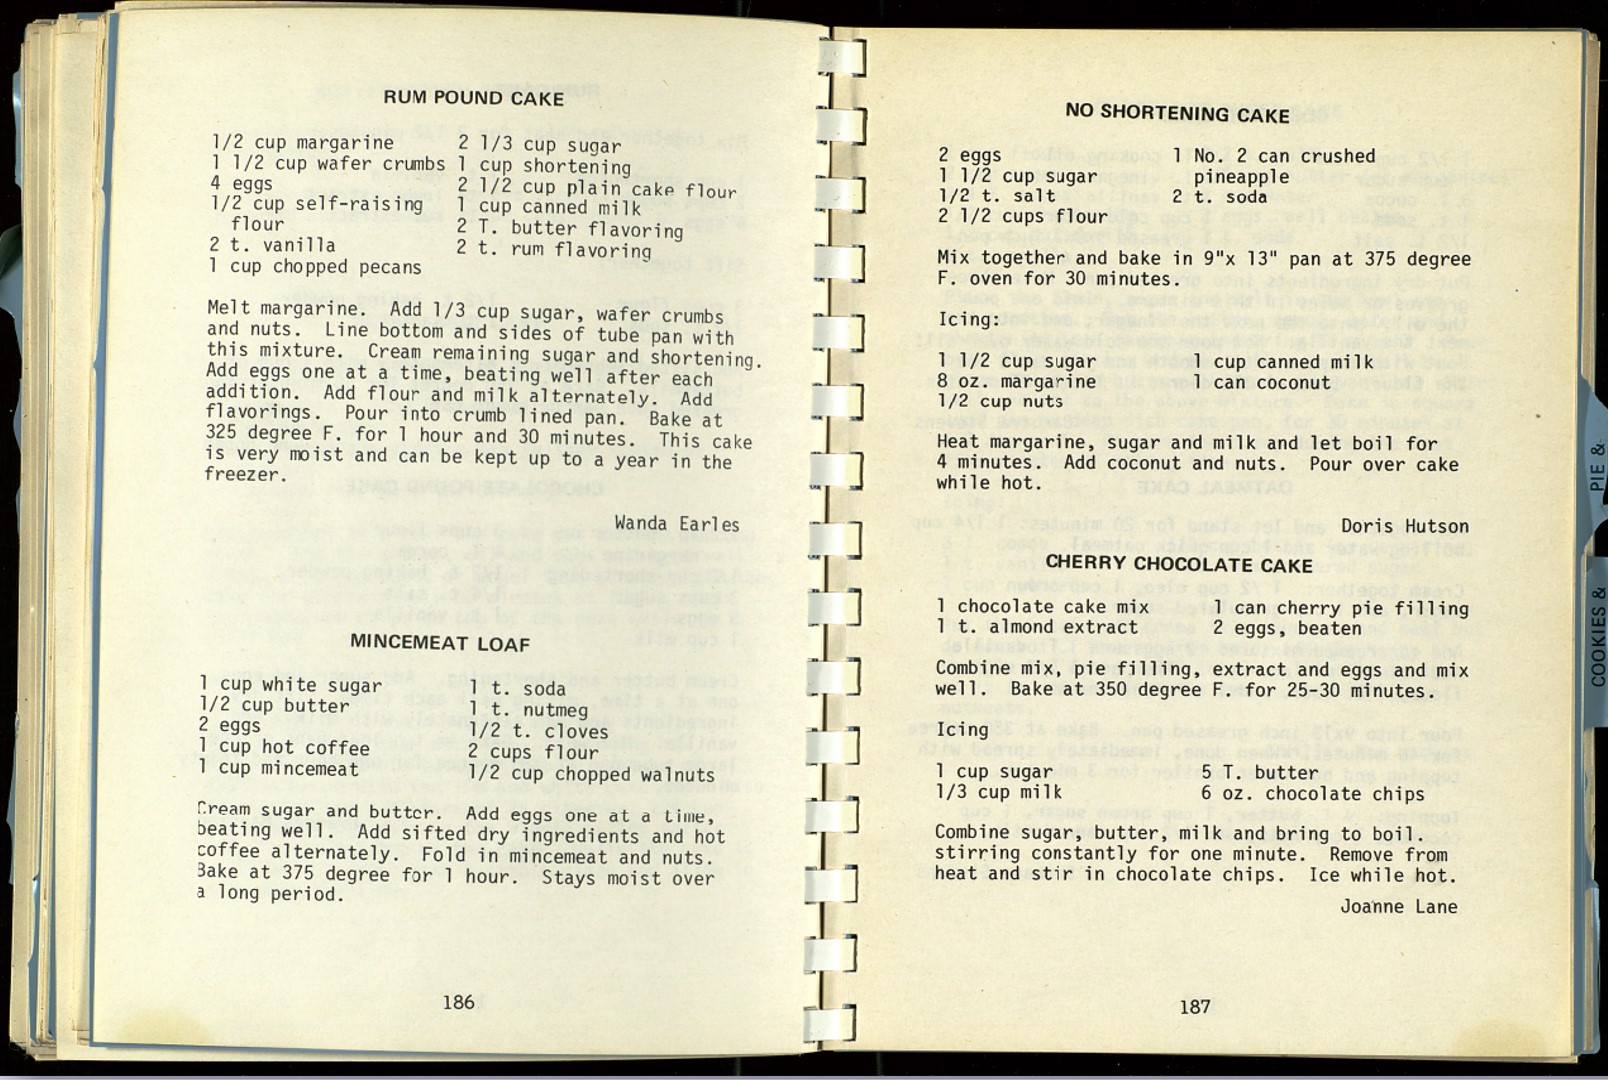 RUM POUND CAKE
1/2 cup margarine 2 1/3 cup sugar
1 1/2 cup wafer crumbs 1 cup shortening
4 eggs 2 1/2 cup plain cake flour
1/2 cup self-raising 1 cup canned milk
flour 2 T. butter flavoring
2 t. vanilla 2 t. rum flavoring
1 cup chopped pecans
Melt margarine. Add 1/3 cup sugar, wafer crumbs
and nuts. Line bottom and sides of tube pan with
this mixture. Cream remaining sugar and shortening.
Add eggs one at a time, beating well after each
addition. Add flour and milk alternately. Add
flavorings. Pour into crumb lined pan. Bake at
325 degree F. for 1 hour and 30 minutes. This cake
is very moist and can be kept up to a year in the
freezer.
Wanda Earles
MINCEMEAT LOAF
1 cup white sugar 1 t. soda
1/2 cup butter 1 t. nutmeg
2 eggs 1/2 t. cloves
1 cup hot coffee 2 cups flour
1 cup mincemeat 1/2 cup chopped walnuts
Cream sugar and butter. Add eggs one at a time,
beating well. Add sifted dry ingredients and hot
coffee alternately. Fold in mincemeat and nuts.
Bake at 375 degree for 1 hour. Stays moist over
a long period.
186
NO SHORTENING CAKE
2 eggs 1 No. 2 can crushed
1 1/2 cup sugar pineapple
1/2 t. salt 2 t. soda
2 1/2 cups flour
Mix together and bake in 9"x 13" pan at 375 degree
F. oven for 30 minutes.
Icing:
1 1/2 cup sugar 1 cup canned milk
8 oz. margarine 1 can coconut
1/2 cup nuts
Heat margarine, sugar and milk and let boil for
4 minutes. Add coconut and nuts. Pour over cake
while hot.
Doris Hutson
CHERRY CHOCOLATE CAKE
1 chocolate cake mix 1 can cherry pie filling
1 t. almond extract 2 eggs, beaten
Combine mix, pie filling, extract and eggs and mix
well. Bake at 350 degree F. for 25-30 minutes.
Icing
1 cup sugar 5 T. butter
1/3 cup milk 6 oz. chocolate chips
Combine sugar, butter, milk and bring to boil.
stirring constantly for one minute. Remove from
heat and stir in chocolate chips. Ice while hot.
Joanne Lane
187
PIE &
COOKIES &